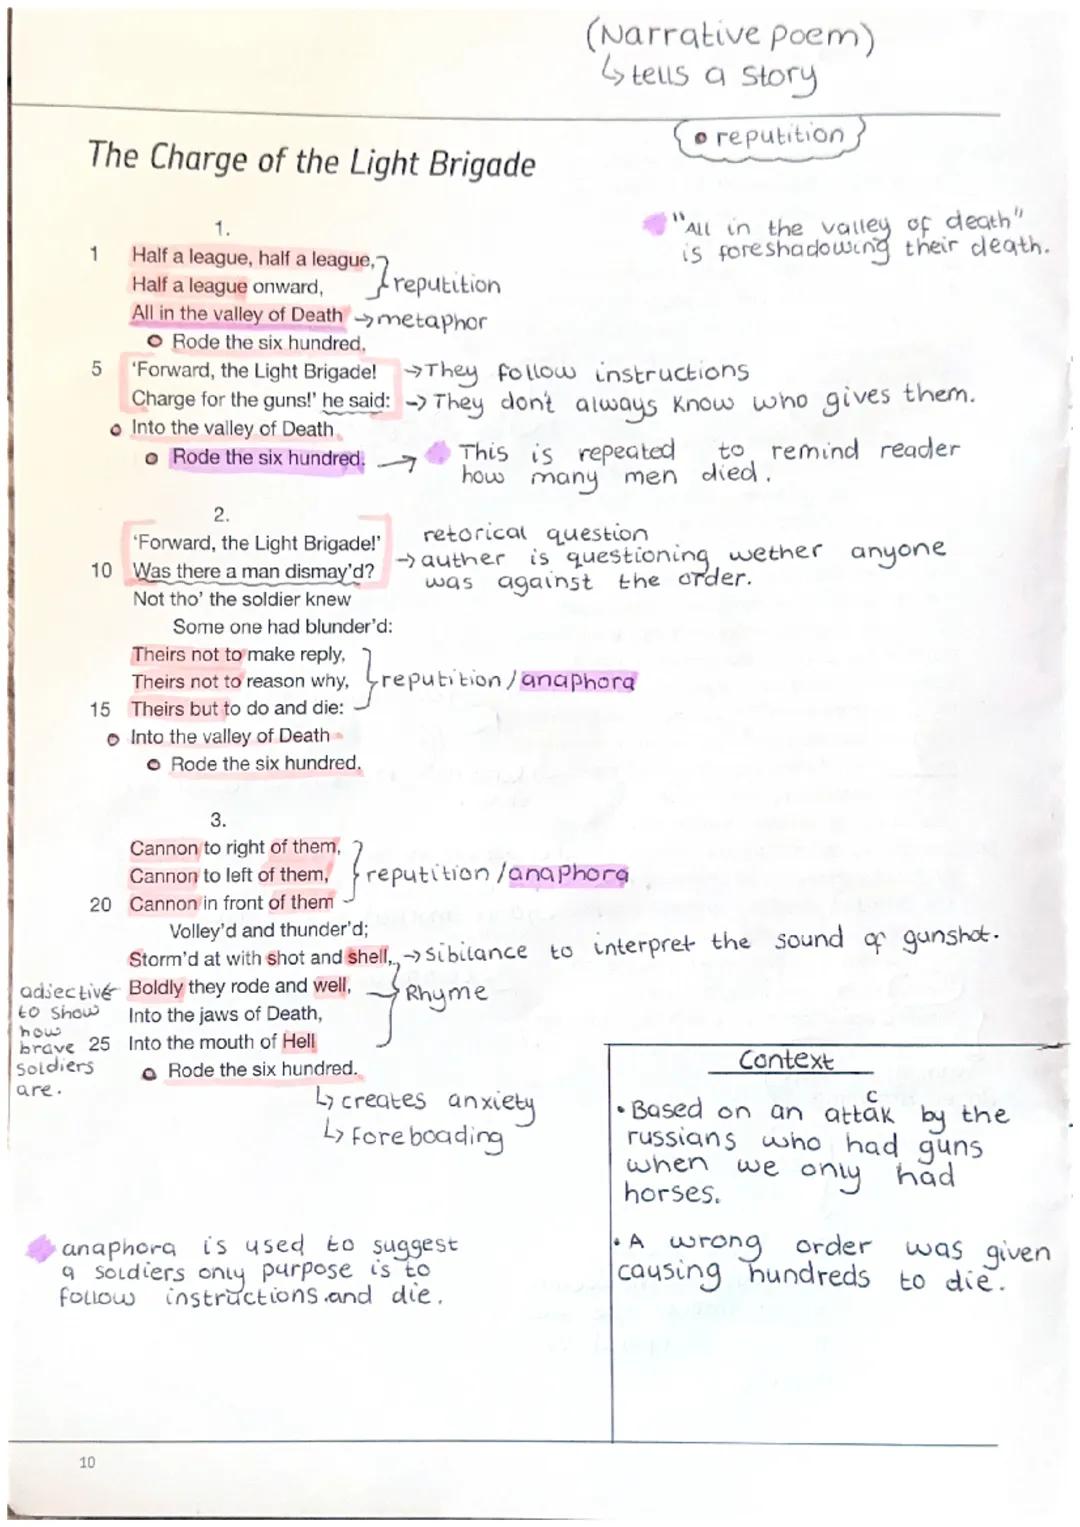 (Narrative poem)
↳ tells a story
The Charge of the Light Brigade
• reputition
"All in the valley of death"
is foreshadowing their death.
1.
1 Half a league, half a league,
Half a league onward,
reputition
All in the valley of Death → metaphor
Rode the six hundred.
5 'Forward, the Light Brigade! → They follow instructions
Charge for the guns!' he said: → They don't always know who gives them.
Into the valley of Death
Rode the six hundred. → This is repeated to remind reader
how many men died.
2.
'Forward, the Light Brigade!'
retorical question
10 Was there a man dismay'd? → auther is questioning wether anyone
was against the order.
Not tho' the soldier knew
Some one had blunder'd:
Theirs not to make reply,
Theirs not to reason why, reputition / anaphora
15 Theirs but to do and die:
Into the valley of Death
Rode the six hundred.
3.
Cannon to right of them,
Cannon to left of them, reputition / anaphora
20 Cannon in front of them
Volley'd and thunder'd;
Storm'd at with shot and shell, → Sibilance to interpret the sound of gunshot.
Boldly they rode and well, Rhyme
Into the jaws of Death,
25 Into the mouth of Hell
Rode the six hundred.
adjective
to show
how
brave
soldiers
are.
↳ creates anxiety
↳ foreboading
Context
• Based on an attack by the
russians who had guns
when we only had
horses.
• A wrong order was given
causing hundreds to die.
anaphora is used to suggest
a soldiers only purpose is to
follow instructions.and die.
10